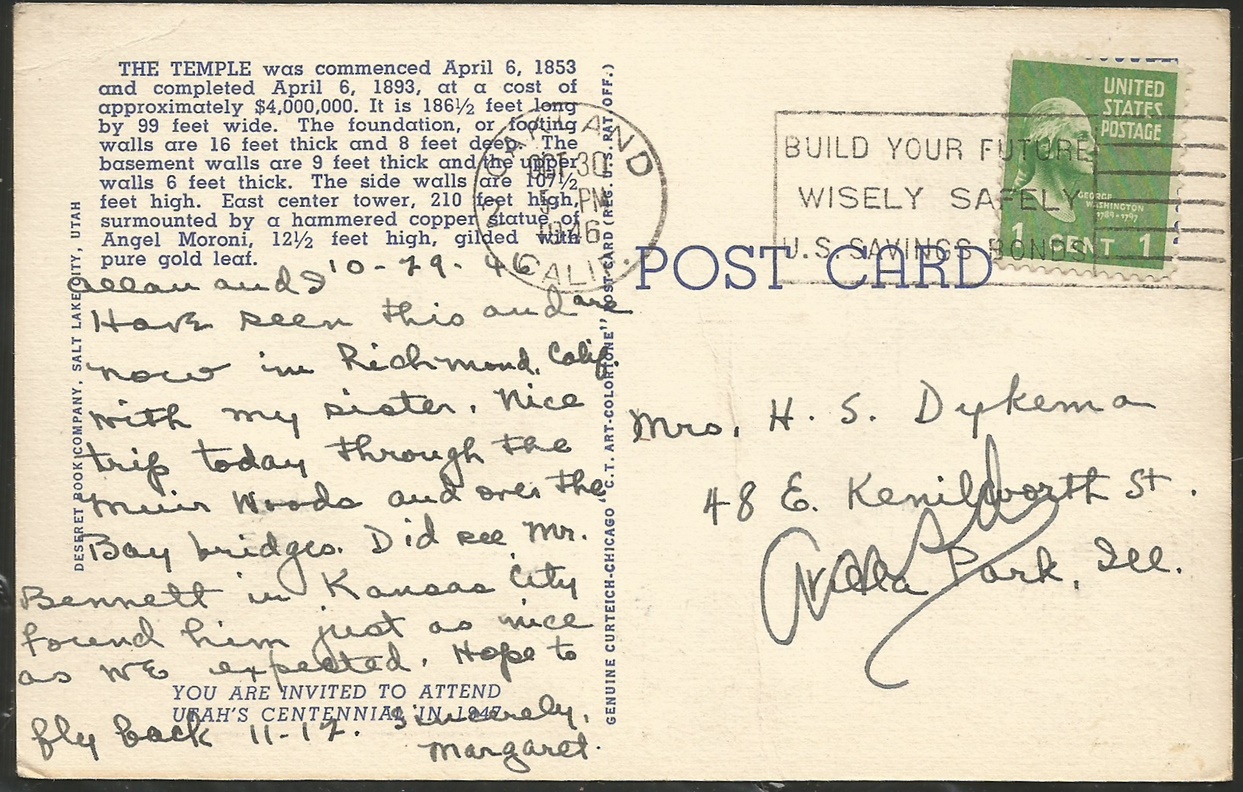 THE TEMPLE was commenced April 6, 1853
and completed April 6, 1893, at a cost of
approximately $4,000,000. It is 186½ feet long
by 99 feet wide. The foundation, or footing
walls are 16 feet thick and 8 feet deep. The
basement walls are 9 feet thick and the upper
walls 6 feet thick. The side walls are 107½
feet high. East center tower, 210 feet high,
surmounted by a hammered copper statue of
Angel Moroni, 12½ feet high, gilded with
pure gold leaf.
10-29-46
Allan and I
Have seen this and are
now in Richmond, Calif.
with my sister. Nice
trip today through the
Muir Woods and over the
Bay bridges. Did see Mr.
Bennett in Kansas City
found him just as nice
as we expected. Hope to
fly back 11-12. Sincerely,
Margaret.
YOU ARE INVITED TO ATTEND
UTAH'S CENTENNIAL IN 1947
DESERET BOOK COMPANY, SALT LAKE CITY, UTAH
GENUINE CURTEICH-CHICAGO "C.T. ART-COLORTONE" POST CARD (REG. U.S. PAT. OFF.)
OAKLAND
OCT 30
5 PM
1946
CALIF.
BUILD YOUR FUTURE
WISELY SAFELY
U.S. SAVINGS BONDS
UNITED
STATES
POSTAGE
GEORGE
WASHINGTON
1789-1797
1 CENT 1
POST CARD
Mrs. H. S. Dykema
48 E. Kenilworth St.
Villa Park, Ill.